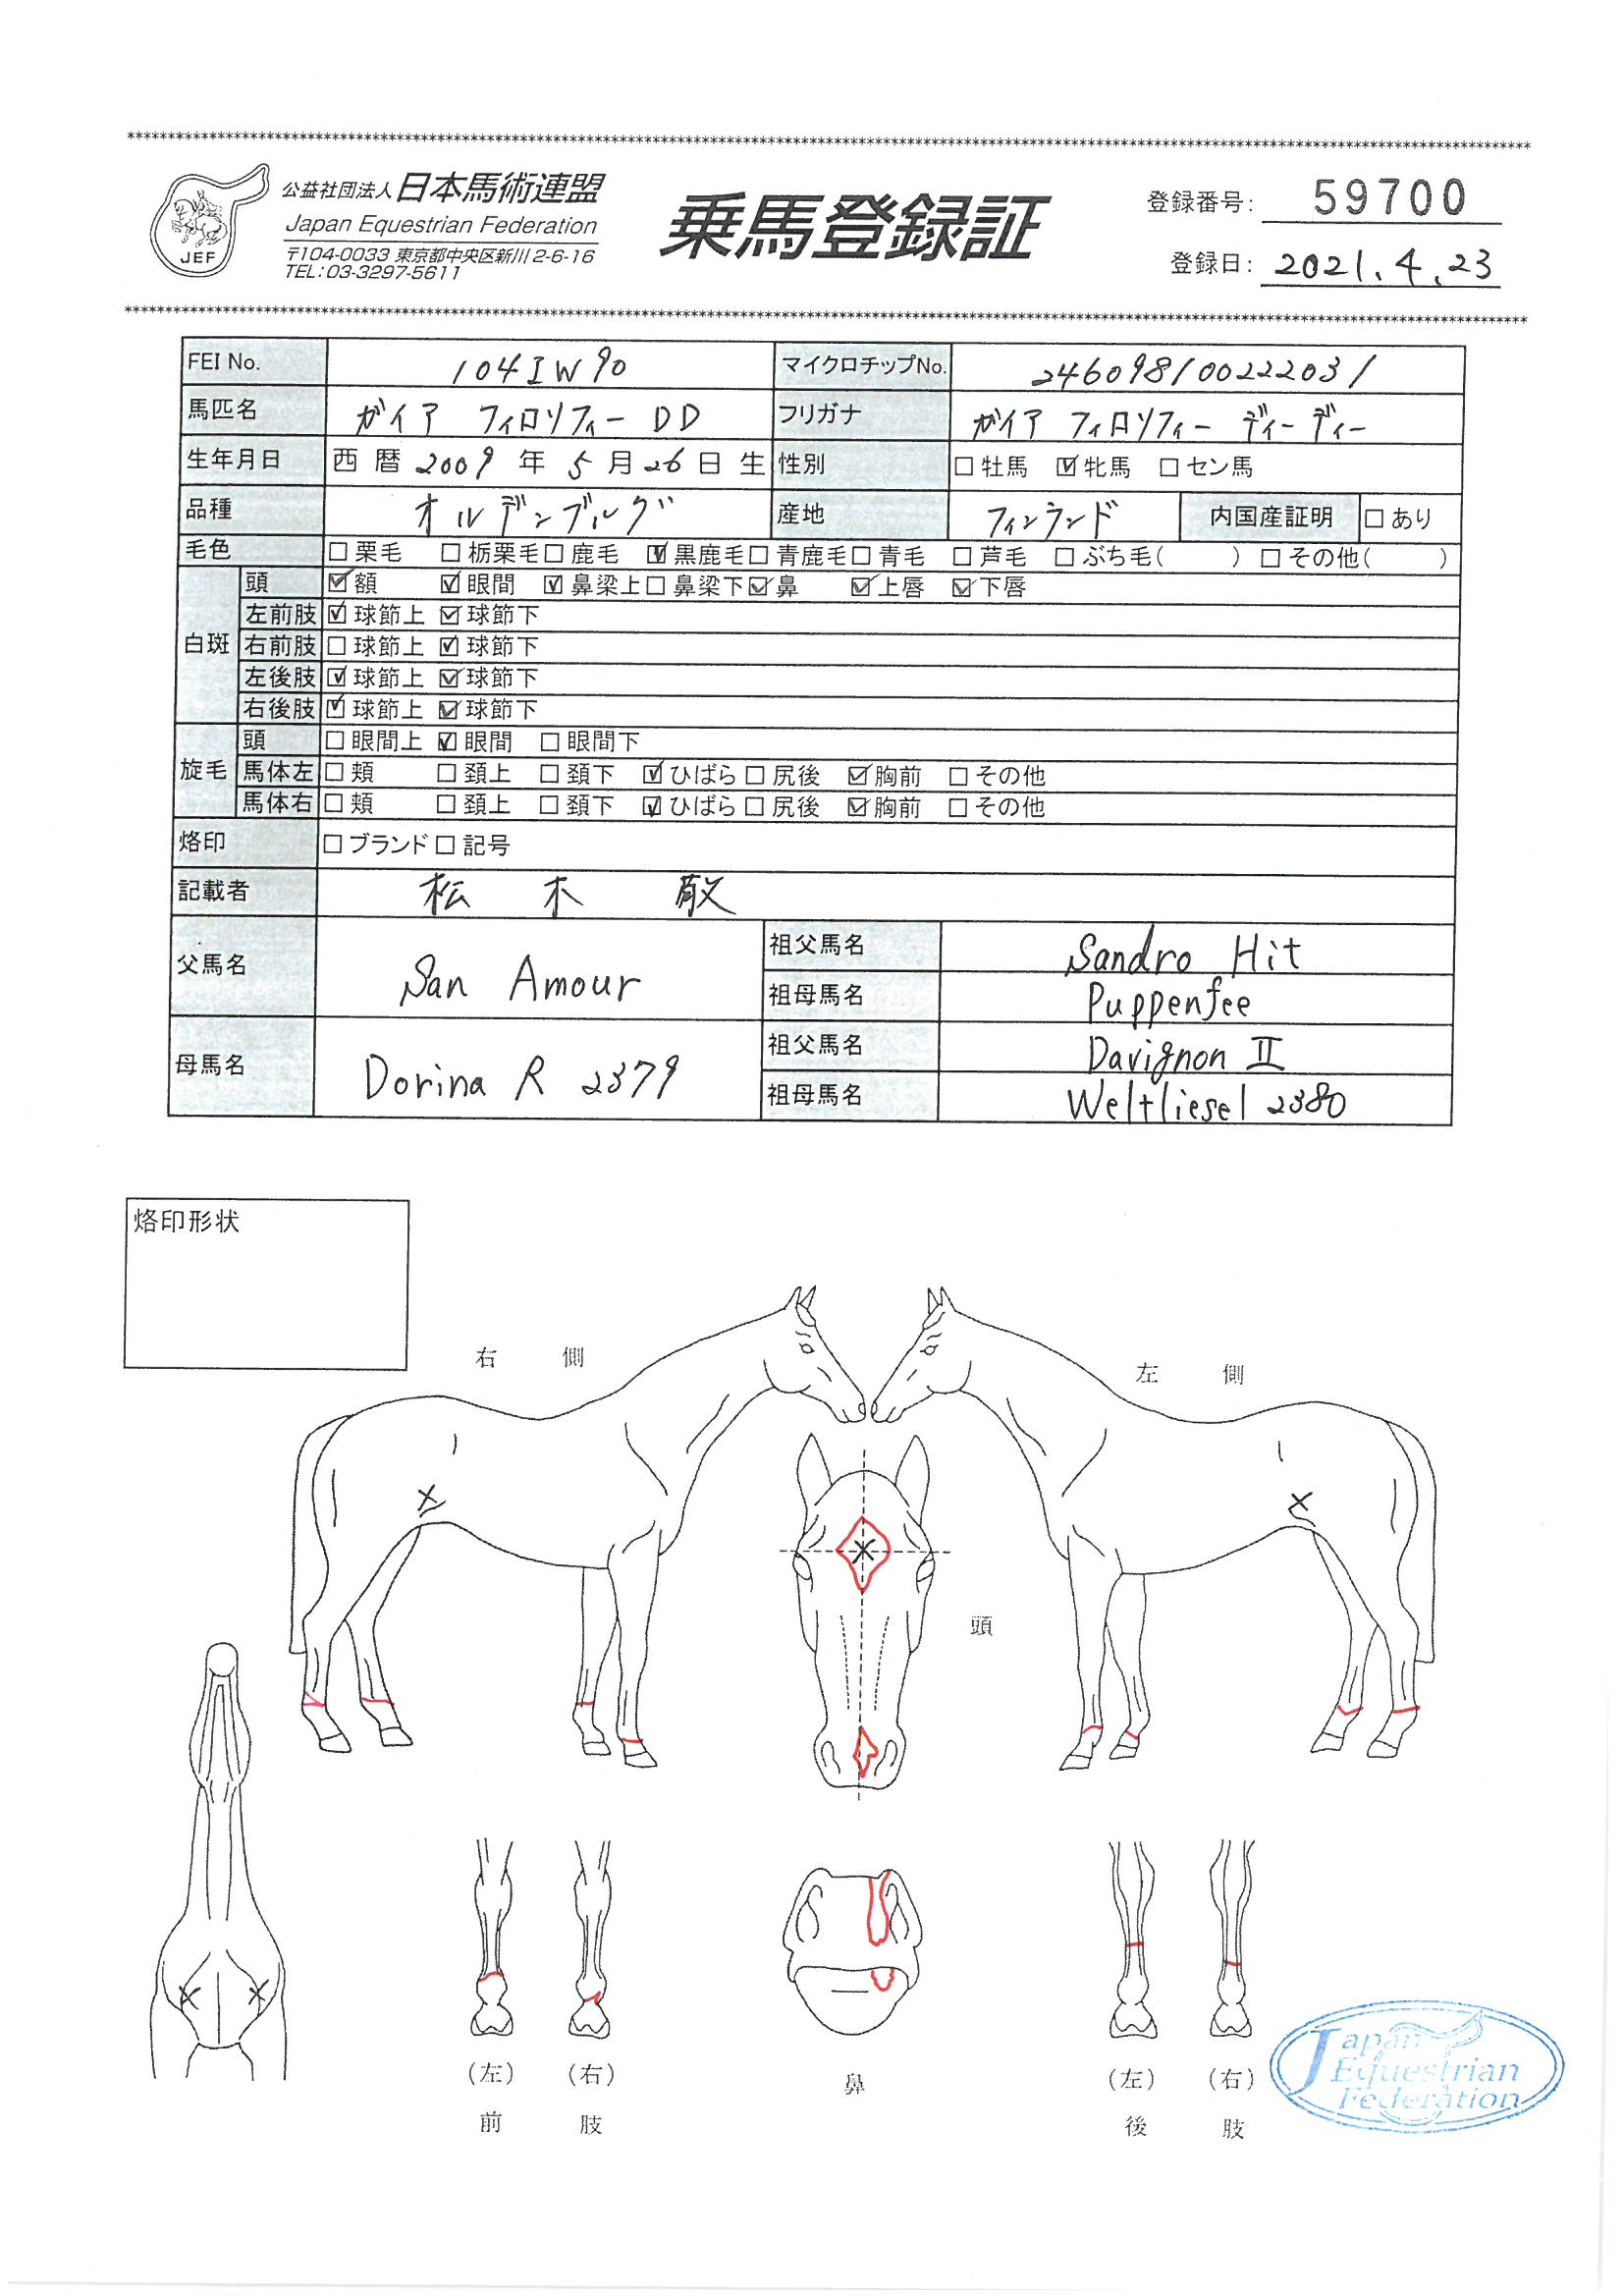 公益社団法人 日本馬術連盟
Japan Equestrian Federation
〒104-0033 東京都中央区新川2-6-16
TEL:03-3297-5611
JEF
乗馬登録証
登録番号: 59700
登録日: 2021.4.23
FEI No. 104IW90 マイクロチップNo. 246098100222031
馬匹名 ガイア フィロソフィー DD フリガナ ガイア フィロソフィー ディーディー
生年月日 西暦 2009 年 5 月 26 日 生 性別 □牡馬 ☑牝馬 □セン馬
品種 オルデンブルグ 産地 フィンランド 内国産証明 □あり
毛色 □栗毛 □栃栗毛 □鹿毛 ☑黒鹿毛 □青鹿毛 □青毛 □芦毛 □ぶち毛( ) □その他( )
白斑 頭 ☑額 ☑眼間 ☑鼻梁上 □鼻梁下 ☑鼻 ☑上唇 ☑下唇
左前肢 ☑球節上 ☑球節下
右前肢 □球節上 ☑球節下
左後肢 ☑球節上 ☑球節下
右後肢 ☑球節上 ☑球節下
旋毛 頭 □眼間上 ☑眼間 □眼間下
馬体左 □頬 □頚上 □頚下 ☑ひばら □尻後 ☑胸前 □その他
馬体右 □頬 □頚上 □頚下 ☑ひばら □尻後 ☑胸前 □その他
烙印 □ブランド □記号
記載者 松木
父馬名 San Amour 祖父馬名 Sandro Hit
祖母馬名 Puppenfee
母馬名 Dorina R 2379 祖父馬名 Davignon II
祖母馬名 Weltliesel 2380
烙印形状
右側
左側
頭
(左) (右)
前肢
鼻
(左) (右)
後肢
Japan
Equestrian
Federation